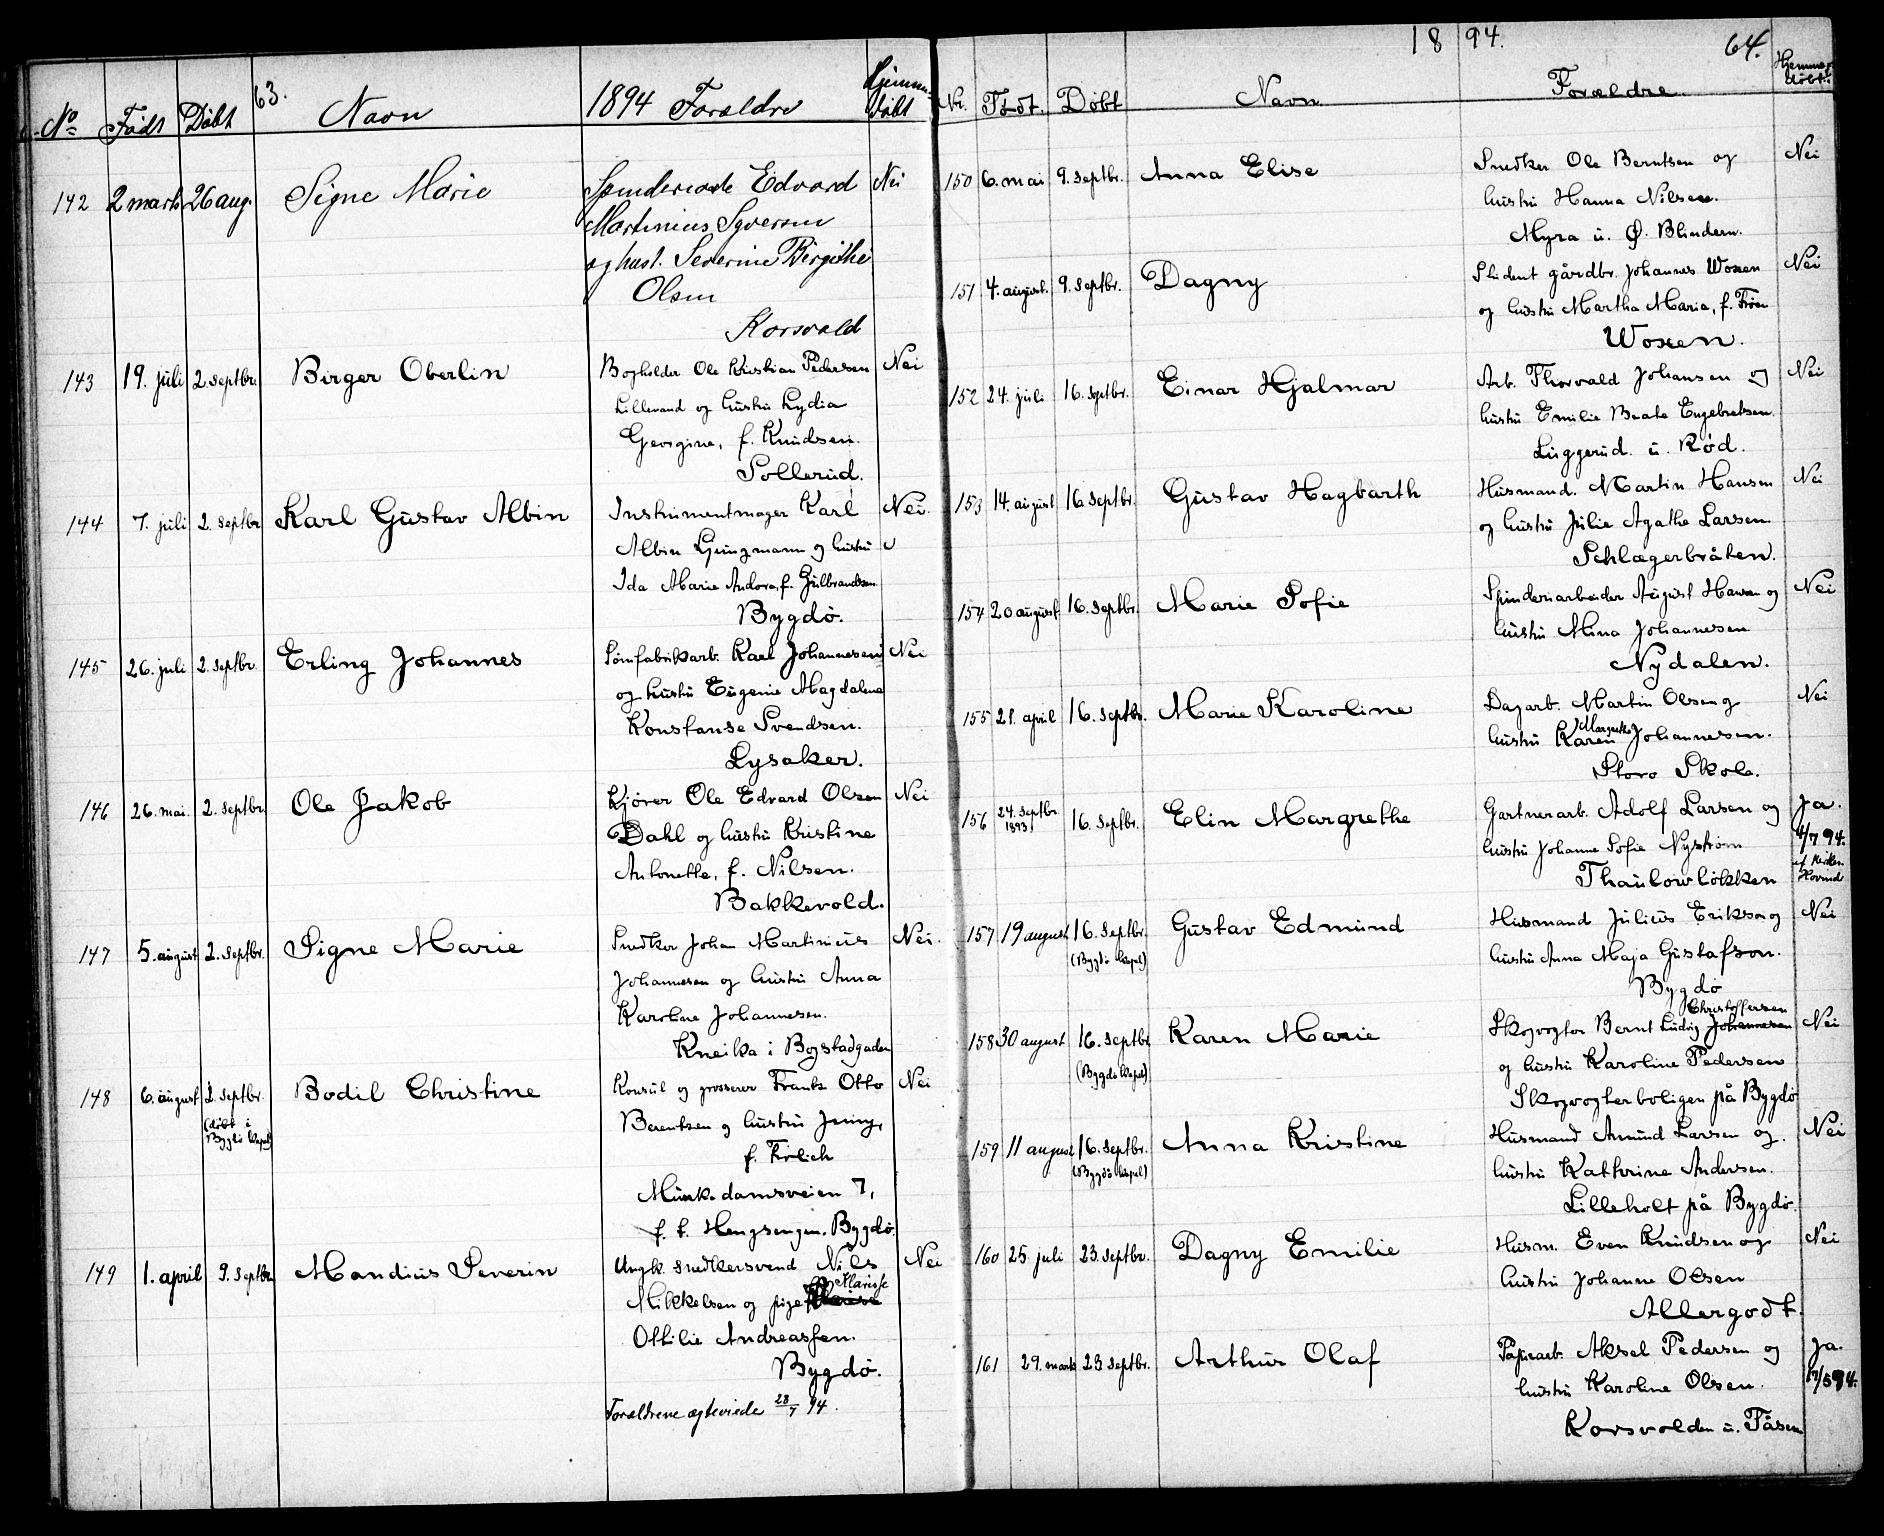 63. 1894
No Født Døbt Navn Forældre Hjemmedøbt
142 2 marts 26 aug. Signe Marie Edvard Nei
Martinius Syversen
og hust. Severine Birgithe
Olsen
Korsvold
143 19. juli 2. septbr. Birger Oberlin Bogholder Ole Kristian Pedersen Nei
Lillevand og hustru Lydia
Georgine, f. Knudsen.
Sollerud.
144 7. juli 2. septbr. Karl Gustav Albin Instrumentmager Karl Nei.
Albin Ljungmann og hustru
Ida Marie Andora, f. Gulbrandsen
Bygdö.
145 26. juli 2. septbr. Erling Johannes Sömfabrikarb. Karl Johannesen Nei
og hustru Eugenie Magdalena
Konstanse Svendsen.
Lysaker.
146 26. mai. 2. septbr. Ole Jakob Kjörer Ole Edvard Olsen Nei
Dahl og hustru Kristine
Antonette, f. Nilsen.
Bakkevold.
147 5. august 2. septbr. Signe Marie Snedker Johan Martinius Nei.
Johannesen og hustru Anna
Karoline Johannesen.
Kneika i Bogstadgaden
148 6. august 2. septbr. Bodil Christine Konsul og grosserer Frantz Otto Nei
(döbt i Bygdö kapel) Berentsen og hustru Jenny,
f. Frölich
Munkedamsveien 7,
f. t. Hengsengen. Bygdö.
149 1. april 9. septbr. Mandius Severin Ungk. snedkersvend Nils Nei
Mikkelsen og pige Marie Marisse
Ottilie Andreassen.
Bygdö.
Forældrene ægteviede 28/7 94.
1894. 64.
Nr. Født. Døbt Navn Forældre Hjemmedøbt.
150 6. mai 9. septbr. Anna Elise Snedker Ole Berntsen og Nei
hustru Hanna Nilsen.
Myra u. Ø. Blindern.
151 4. august. 9. septbr. Dagny Student gårdbr. Johannes Woxen Nei
og hustru Martha Maria, f. Fröen
Woxen.
152 24. juli 16. septbr. Einar Hjalmar Arb. Thorvald Johansen og Nei
hustru Emilie Beate Engebretsen.
Luggerud. u. Röd.
153 14. august 16. septbr. Gustav Hagbarth Husmand. Martin Hansen Nei
og hustru Julie Agathe Larsen.
Schlægerbråten.
154 20 august 16. septbr. Marie Sofie Spinderiarbeider August Hansen og Nei
hustru Mina Johannesen
Nydalen.
155 21. april 16. septbr. Marie Karoline Dagarb. Martin Olsen og Nei
hustru Karen Margrethe Johannesen.
Storo Skole.
156 24. septbr. 1893 16. septbr. Elin Margrethe Gartnerarb. Adolf Larsen og Ja.
hustru Johanne Sofie Nyström 4/7 94.
Thaulowlökken Hovind
157 19 august 16. septbr. Gustav Edmund Husmand Julius Erikson og Nei
(Bygdö kapel) hustru Anna Maja Gustafson.
Bygdö
158 30 august 16. septbr. Karen Marie Skogvogter Bernt Ludvig Johannesen Christoffersen Nei
(Bygdö kapel) og hustru Karoline Pedersen
Skogvogterboligen på Bygdö
159 11 august 16. septbr. Anna Kristine Husmand Amund Larsen og. Nei
(Bygdö kapel) hustru Kathrine Andersen.
Lilleholt på Bygdö.
160 25. juli 23. septbr. Dagny Emilie Husm. Even Knudsen og Nei
hustru Johanne Olsen
Allergodt.
161 29. marts 23 septbr. Arthur Olaf Papirarb. Aksel Pedersen og Ja.
hustru Karoline Olsen.
Korsvolden u. Tåsen